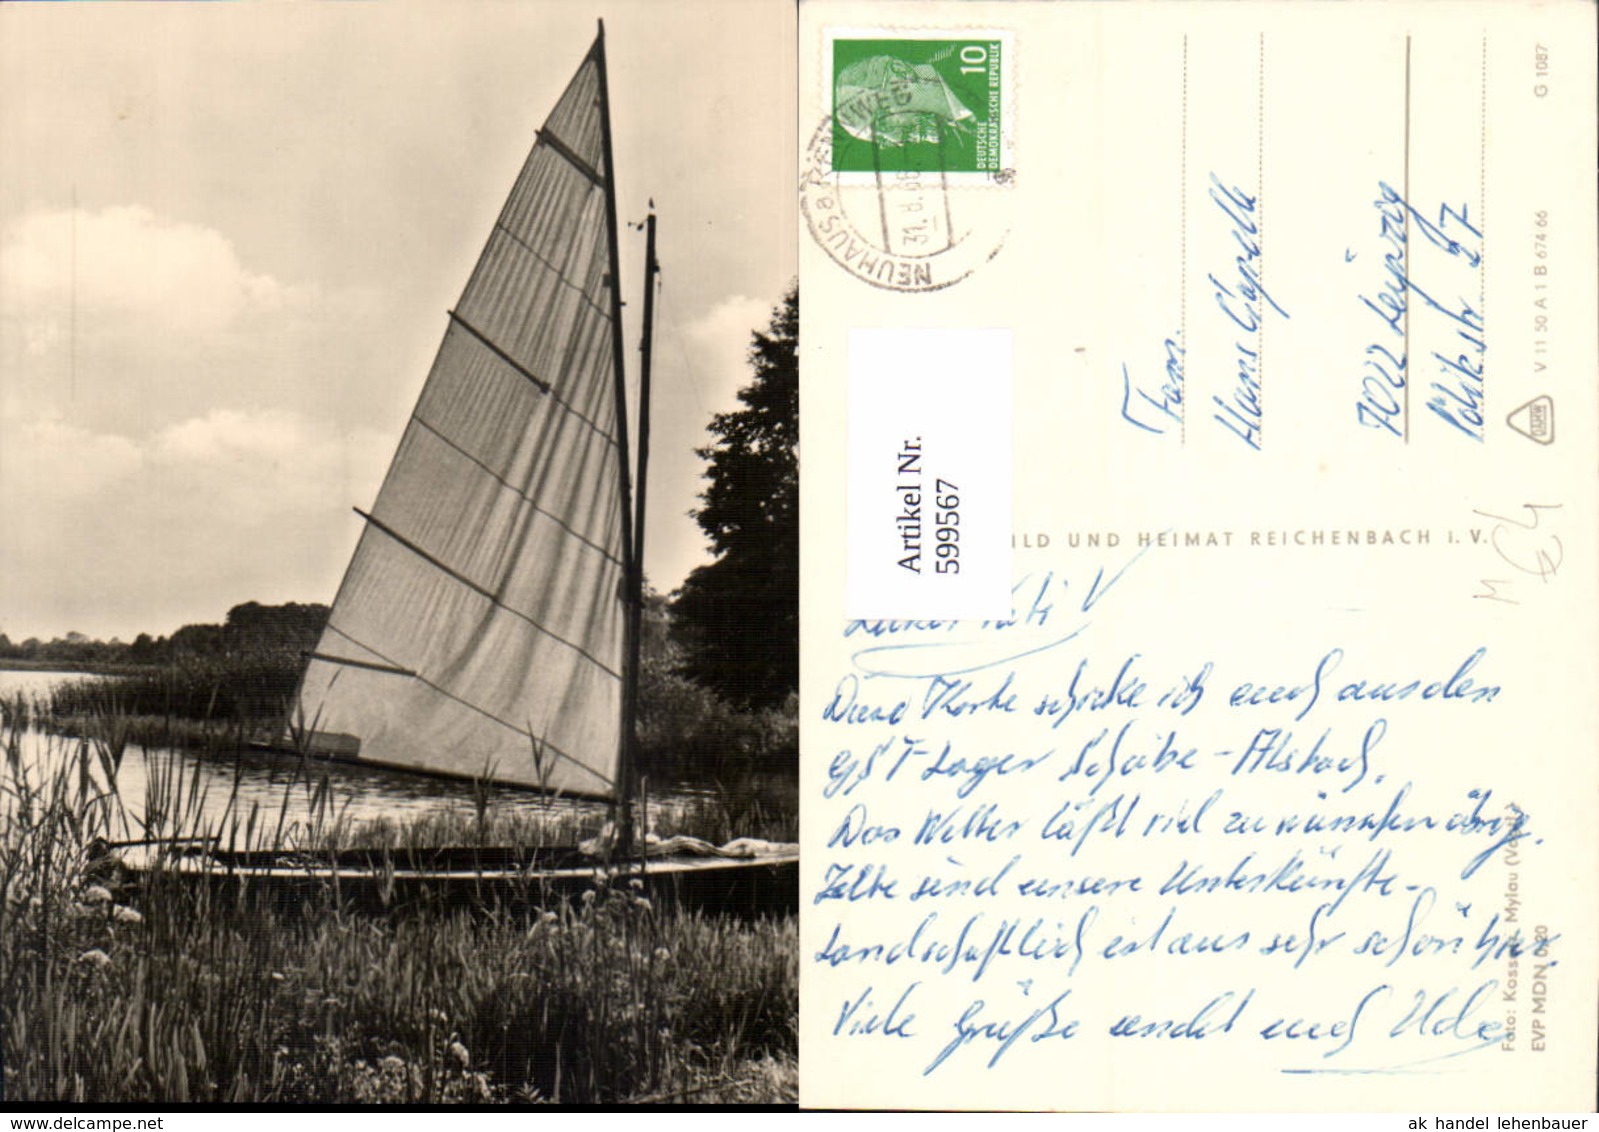 10
DEUTSCHE
DEMOKRATISCHE REPUBLIK
NEUHAUS a RENNWEG
31. 8. 66
Artikel Nr.
599567
Fam.
Hans Capelle
7022 Leipzig
27
G 1087
V 11 50 A 1 B 674 66
ILD UND HEIMAT REICHENBACH I. V.
M
€4
Diese Karte schicke ich euch aus den
GST-Lager Scheibe-Alsbach.
Das Wetter läßt viel zu wünschen übrig.
Zelte sind unsere Unterkünfte.
Landschaftlich ist aus sehr schön hier.
Viele Grüße sendet euch Udo
Foto: Mylau (Vogtl.)
EVP MDN 0,20
ak handel lehenbauer
delcampe.net